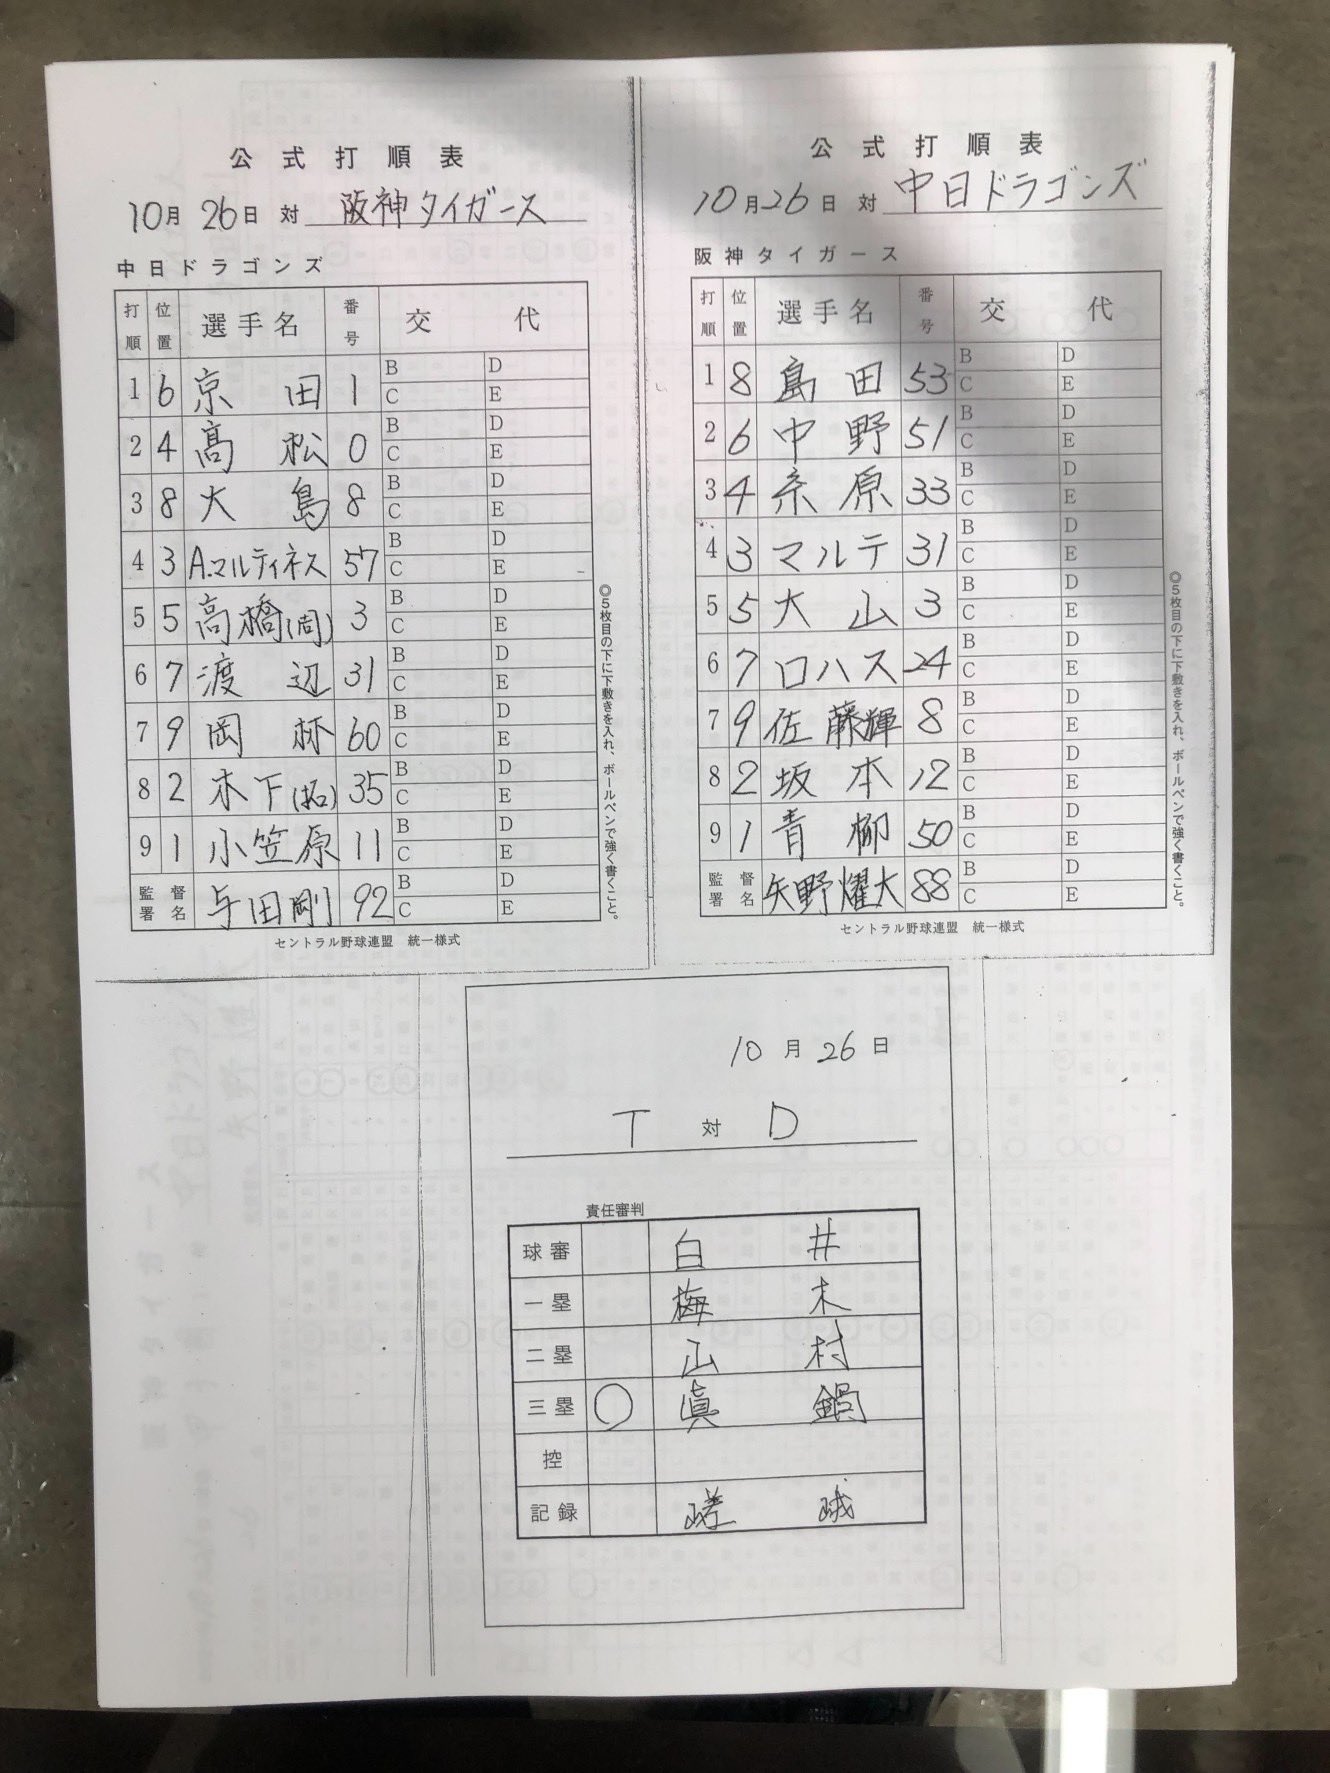 公式打順表
10月26日 対 阪神タイガース
中日ドラゴンズ
打順 位置 選手名 番号 交代
1 6 京田 1 B C D E
2 4 髙松 0 B C D E
3 8 大島 8 B C D E
4 3 A.マルティネス 57 B C D E
5 5 高橋(周) 3 B C D E
6 7 渡辺 31 B C D E
7 9 岡林 60 B C D E
8 2 木下(拓) 35 B C D E
9 1 小笠原 11 B C D E
監督署名 与田剛 92 B C D E
セントラル野球連盟 統一様式
◎5枚目の下に下敷きを入れ、ボールペンで強く書くこと。
公式打順表
10月26日 対 中日ドラゴンズ
阪神タイガース
打順 位置 選手名 番号 交代
1 8 島田 53 B C D E
2 6 中野 51 B C D E
3 4 糸原 33 B C D E
4 3 マルテ 31 B C D E
5 5 大山 3 B C D E
6 7 ロハス 24 B C D E
7 9 佐藤輝 8 B C D E
8 2 坂本 12 B C D E
9 1 青柳 50 B C D E
監督署名 矢野燿大 88 B C D E
セントラル野球連盟 統一様式
◎5枚目の下に下敷きを入れ、ボールペンで強く書くこと。
10月26日
T 対 D
責任審判
球審 白井
一塁 梅木
二塁 山村
三塁 ○ 眞鍋
控
記録 嵯峨